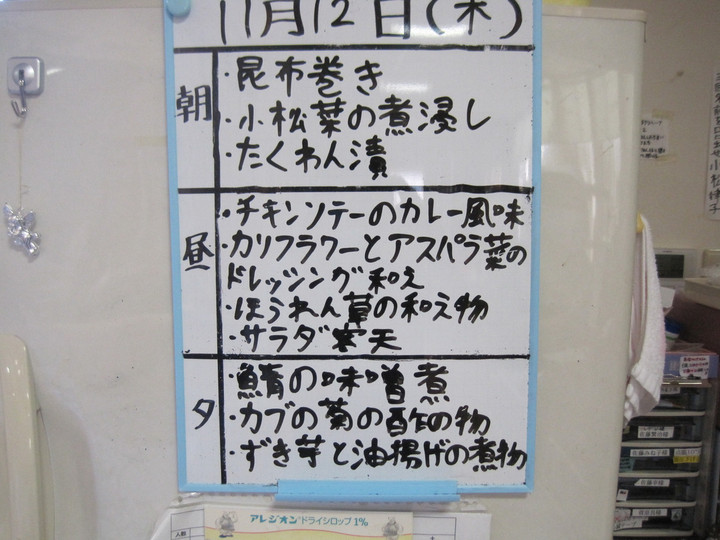 11月12日(木)
朝
・昆布巻き
・小松菜の煮浸し
・たくわん漬
昼
・チキンソテーのカレー風味
・カリフラワーとアスパラ菜の
ドレッシング和え
・ほうれん草の和え物
・サラダ寒天
夕
・鯖の味噌煮
・カブの菊の酢の物
・ずき芋と油揚げの煮物
アレジオン ドライシロップ 1%